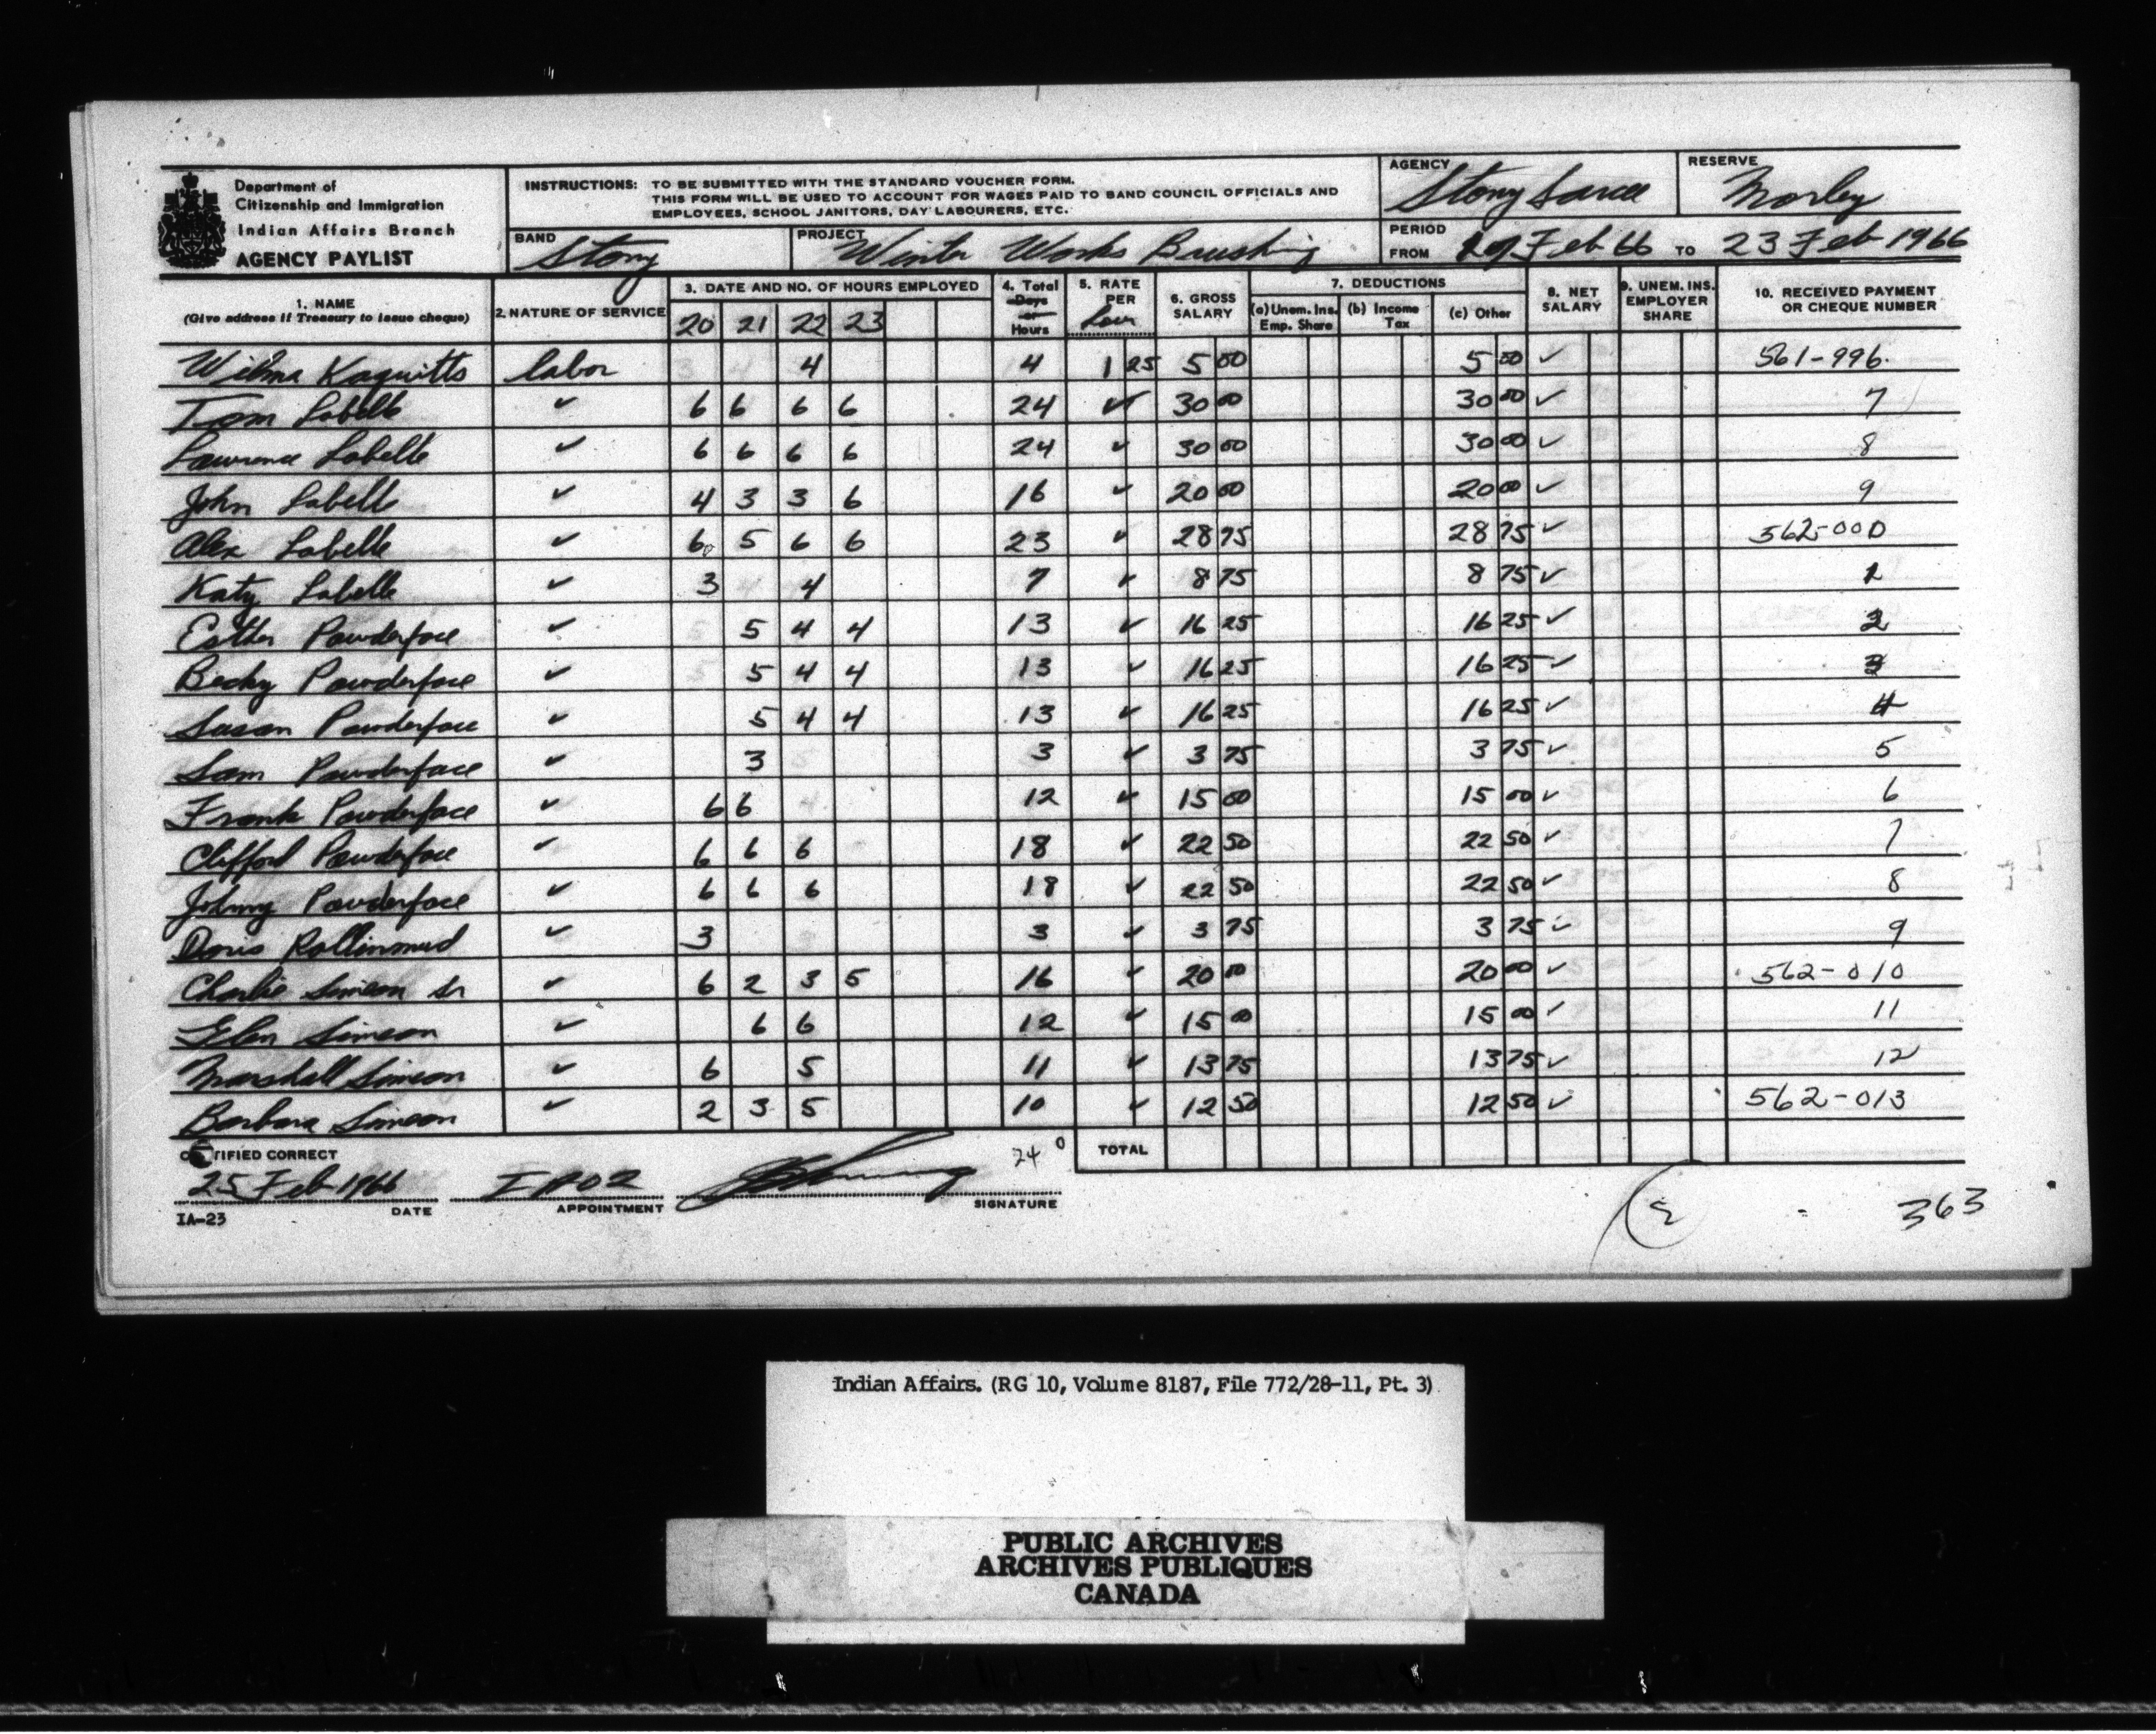 Department of
Citizenship and Immigration
Indian Affairs Branch
AGENCY PAYLIST
INSTRUCTIONS: TO BE SUBMITTED WITH THE STANDARD VOUCHER FORM.
THIS FORM WILL BE USED TO ACCOUNT FOR WAGES PAID TO BAND COUNCIL OFFICIALS AND
EMPLOYEES, SCHOOL JANITORS, DAY LABOURERS, ETC.
AGENCY Stony Sarcee
RESERVE Morley
BAND Stony
PROJECT Winter Works Brushing
PERIOD FROM 19 Feb 66 TO 23 Feb 1966
1. NAME (Give address if Treasury to issue cheque)
2. NATURE OF SERVICE
3. DATE AND NO. OF HOURS EMPLOYED
20 21 22 23
4. Total Days or Hours
5. RATE PER hour
6. GROSS SALARY
7. DEDUCTIONS
(a) Unem. Ins. Emp. Share
(b) Income Tax
(c) Other
8. NET SALARY
9. UNEM. INS. EMPLOYER SHARE
10. RECEIVED PAYMENT OR CHEQUE NUMBER
Wilma Kaquitts labor 4 4 1 25 5 00 5 00 ✓ 561-996
Tom Labelle ✓ 6 6 6 6 24 ✓ 30 00 30 00 ✓ 7
Lawrence Labelle ✓ 6 6 6 6 24 ✓ 30 00 30 00 ✓ 8
John Labelle ✓ 4 3 3 6 16 ✓ 20 00 20 00 ✓ 9
Alex Labelle ✓ 6 5 6 6 23 ✓ 28 75 28 75 ✓ 562-000
Katy Labelle ✓ 3 4 7 ✓ 8 75 8 75 ✓ 1
Esther Powderface ✓ 5 4 4 13 ✓ 16 25 16 25 ✓ 2
Becky Powderface ✓ 5 4 4 13 ✓ 16 25 16 25 ✓ 3
Susan Powderface ✓ 5 4 4 13 ✓ 16 25 16 25 ✓ 4
Sam Powderface ✓ 3 3 ✓ 3 75 3 75 ✓ 5
Frank Powderface ✓ 6 6 12 ✓ 15 00 15 00 ✓ 6
Clifford Powderface ✓ 6 6 6 18 ✓ 22 50 22 50 ✓ 7
Johny Powderface ✓ 6 6 6 18 ✓ 22 50 22 50 ✓ 8
Doris Rollinmud ✓ 3 3 ✓ 3 75 3 75 ✓ 9
Charlie Simeon Sr ✓ 6 2 3 5 16 ✓ 20 00 20 00 ✓ 562-010
Glen Simeon ✓ 6 6 12 ✓ 15 00 15 00 ✓ 11
Marshall Simeon ✓ 6 5 11 ✓ 13 75 13 75 ✓ 12
Barbara Simeon ✓ 2 3 5 10 ✓ 12 50 12 50 ✓ 562-013
CERTIFIED CORRECT
240
TOTAL
25 Feb 1966
DATE
APPOINTMENT
SIGNATURE
IA-23
363
Indian Affairs. (RG 10, Volume 8187, File 772/28-11, Pt. 3)
PUBLIC ARCHIVES
ARCHIVES PUBLIQUES
CANADA